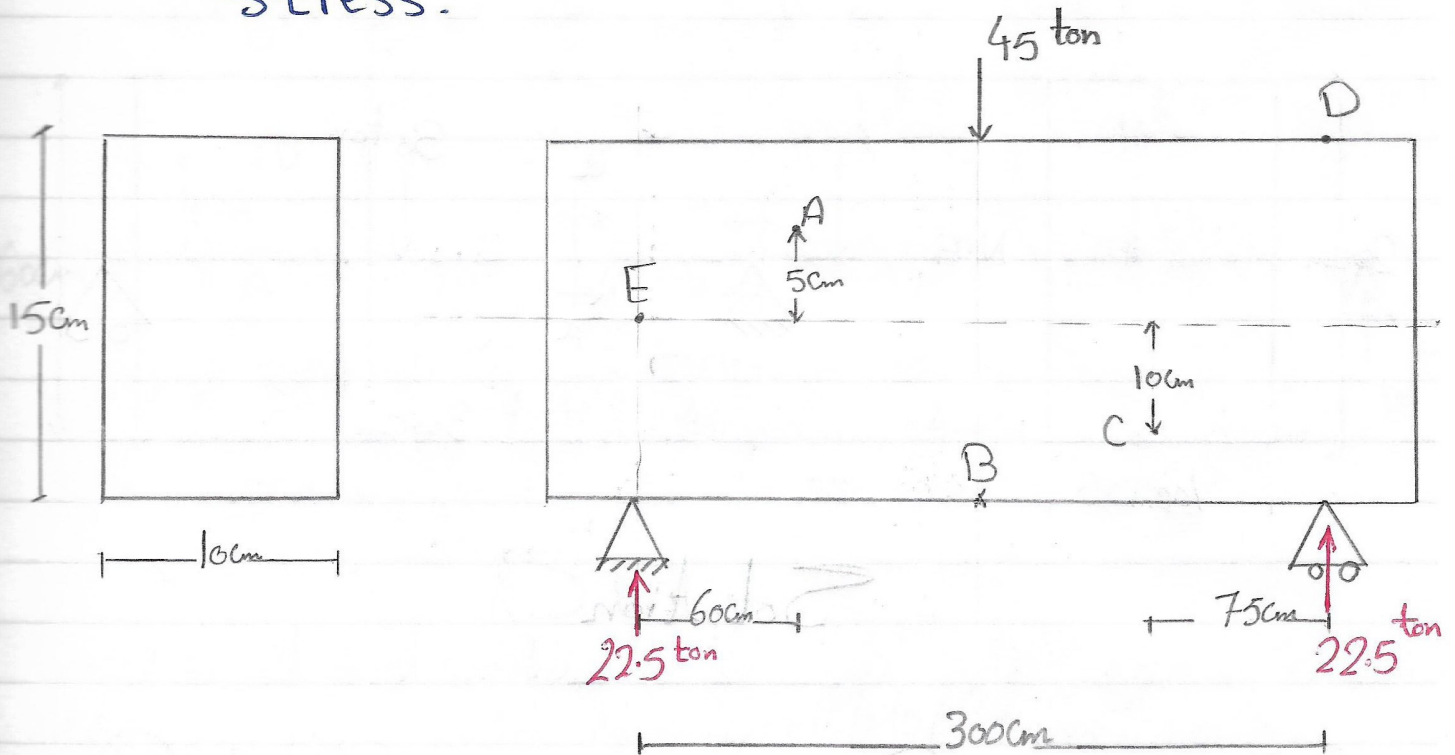 stress.
45 ton
D
A
E
5cm
15cm
10cm
C
B
10cm
60cm
75cm
22.5 ton
22.5 ton
300cm